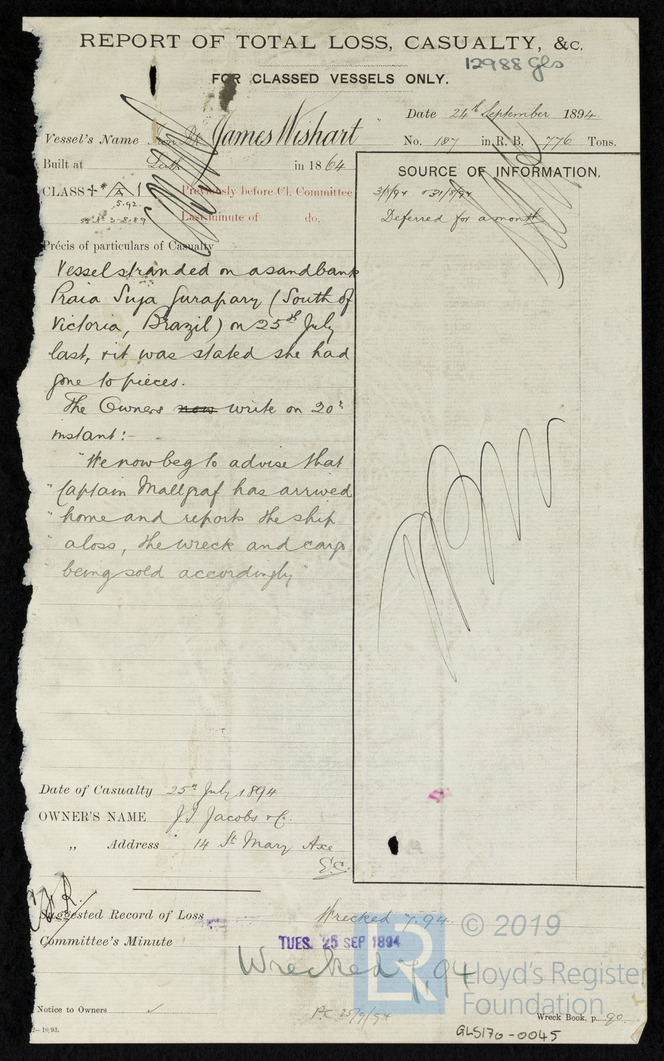 REPORT OF TOTAL LOSS, CASUALTY, &c.
12988 Gls
FOR CLASSED VESSELS ONLY.
Date 24th September 1894
Vessel's Name James Wishart
No. 187 in R. B. 776 Tons.
Built at Leith in 1864
SOURCE OF INFORMATION.
CLASS
Previously before Cl. Committee
5.92.
Last minute of do.
Deferred for a month
Précis of particulars of Casualty
Vessel stranded on a sandbank
Praia Suja Gurapary (South of
Victoria, Brazil) on 25th July
last, & it was stated she had
gone to pieces.
The Owners now write on 20th
instant:-
"We now beg to advise that
"Captain Mallgraf has arrived
"home and reports the ship
"a loss, the wreck and cargo
"being sold accordingly"
Date of Casualty 25th July 1894
OWNER'S NAME J. I. Jacobs & Co.
„ Address 14 St Mary Axe
E.C.
Suggested Record of Loss Wrecked 7.94.
Committee's Minute
TUES. 25 SEP 1894
Wrecked 7.94
© 2019
Lloyd's Register
Foundation
LR
Notice to Owners 25/9/94
Wreck Book, p. 90
GLS170-0045